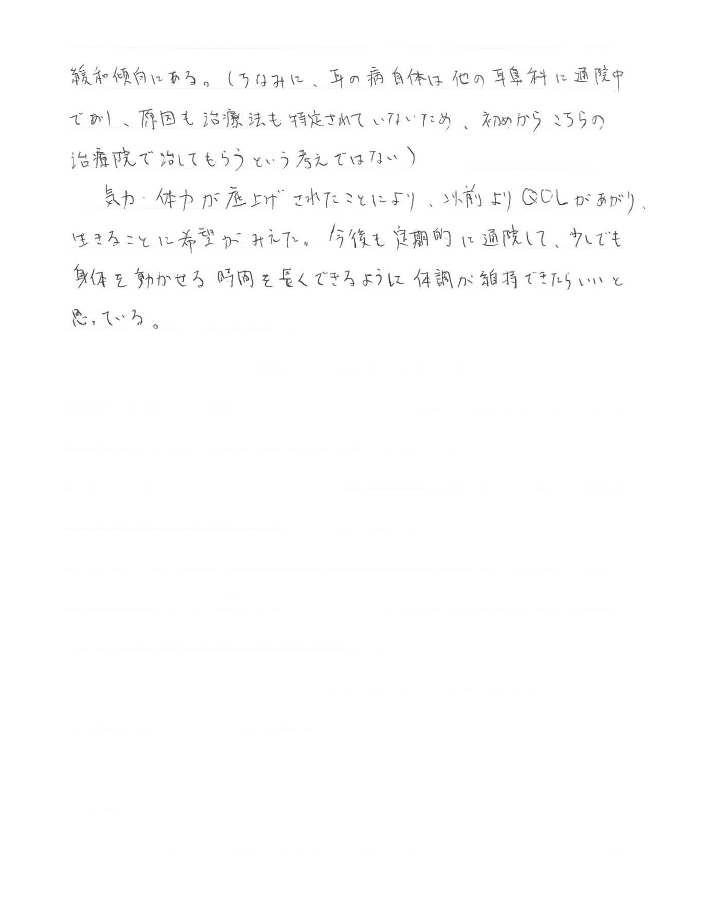 緩和傾向にある。(ちなみに、耳の病自体は他の耳鼻科に通院中
であり、原因も治療法も特定されていないため、初めからこちらの
治療院で治してもらうという考えではない)
気力・体力が底上げされたことにより、以前よりQOLがあがり、
生きることに希望がみえた。今後も定期的に通院して、少しでも
身体を動かせる時間を長くできるように体調が維持できたらいいと
思っている。